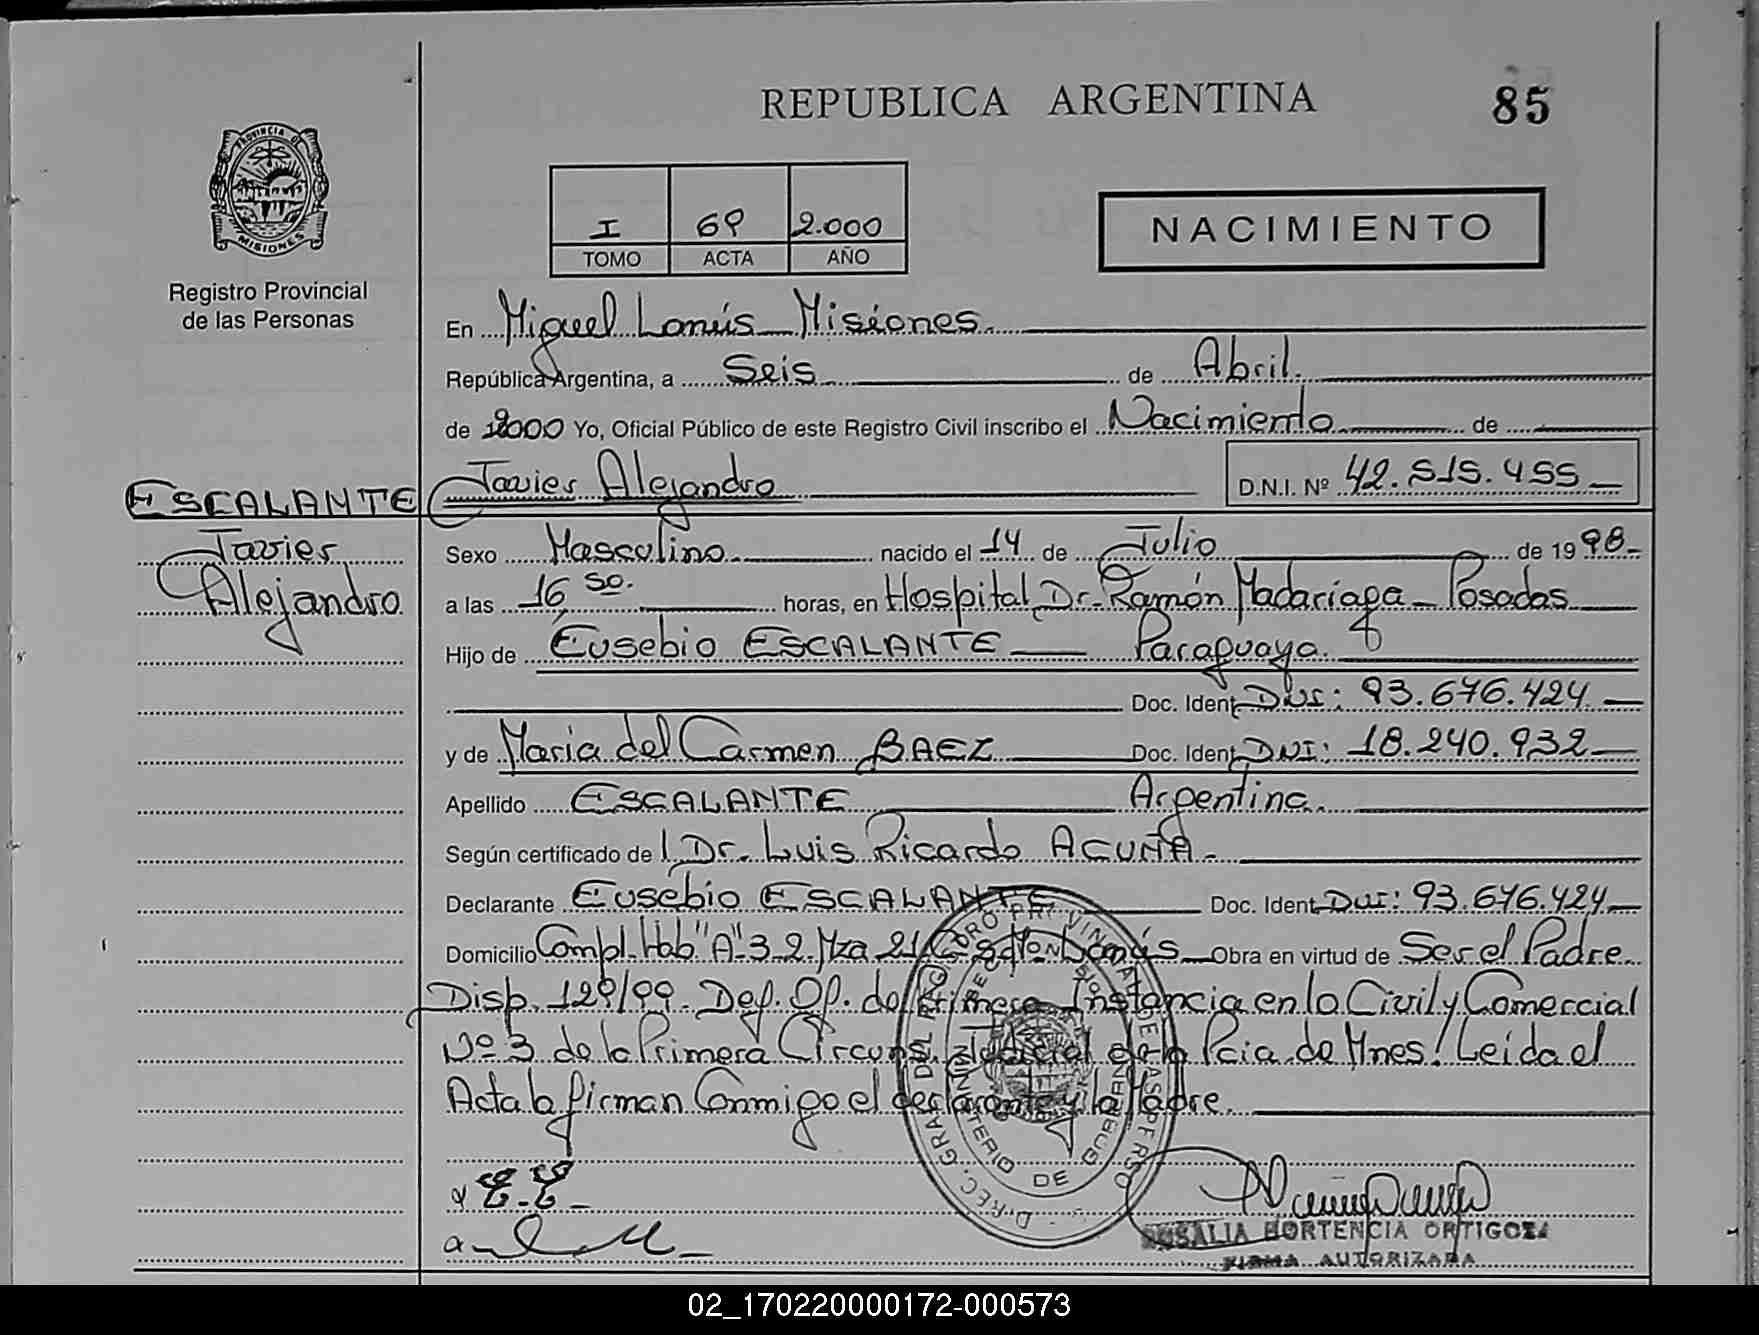 REPUBLICA ARGENTINA
85
PROVINCIA D
MISIONES
Registro Provincial
de las Personas
I 69 2.000
TOMO ACTA AÑO
NACIMIENTO
En Miguel Lanús Misiones
República Argentina, a Seis de Abril.
de 2000 Yo, Oficial Público de este Registro Civil inscribo el Nacimiento de
ESCALANTE Javier Alejandro D.N.I. Nº 42.515.455
Javier Sexo Masculino nacido el 14 de Julio de 1998
Alejandro a las 16,50. horas, en Hospital Dr. Ramón Madariaga Posadas
Hijo de Eusebio ESCALANTE Paraguaya.
Doc. Ident. DNI: 93.676.424
y de Maria del Carmen BAEZ Doc. Ident. DNI: 18.240.932
Apellido ESCALANTE Argentina.
Según certificado de Dr. Luis Ricardo ACUÑA.
Declarante Eusebio ESCALANTE Doc. Ident. DNI: 93.676.424
Domicilio Compl. Hab "A" 32 Mza 21 Lanús Obra en virtud de Ser el Padre
Disp. 129/99. Def. Of. de Primera Instancia en lo Civil y Comercial
Nº 3 de la Primera Circuns. Judicial de la Pcia. de Mnes! Leida el
Acta la firman Conmigo el declarante y la Madre.
E.E.
ROSALIA HORTENCIA ORTIGOZA
FIRMA AUTORIZADA
MINISTERIO DE GOBIERNO
02_170220000172-000573